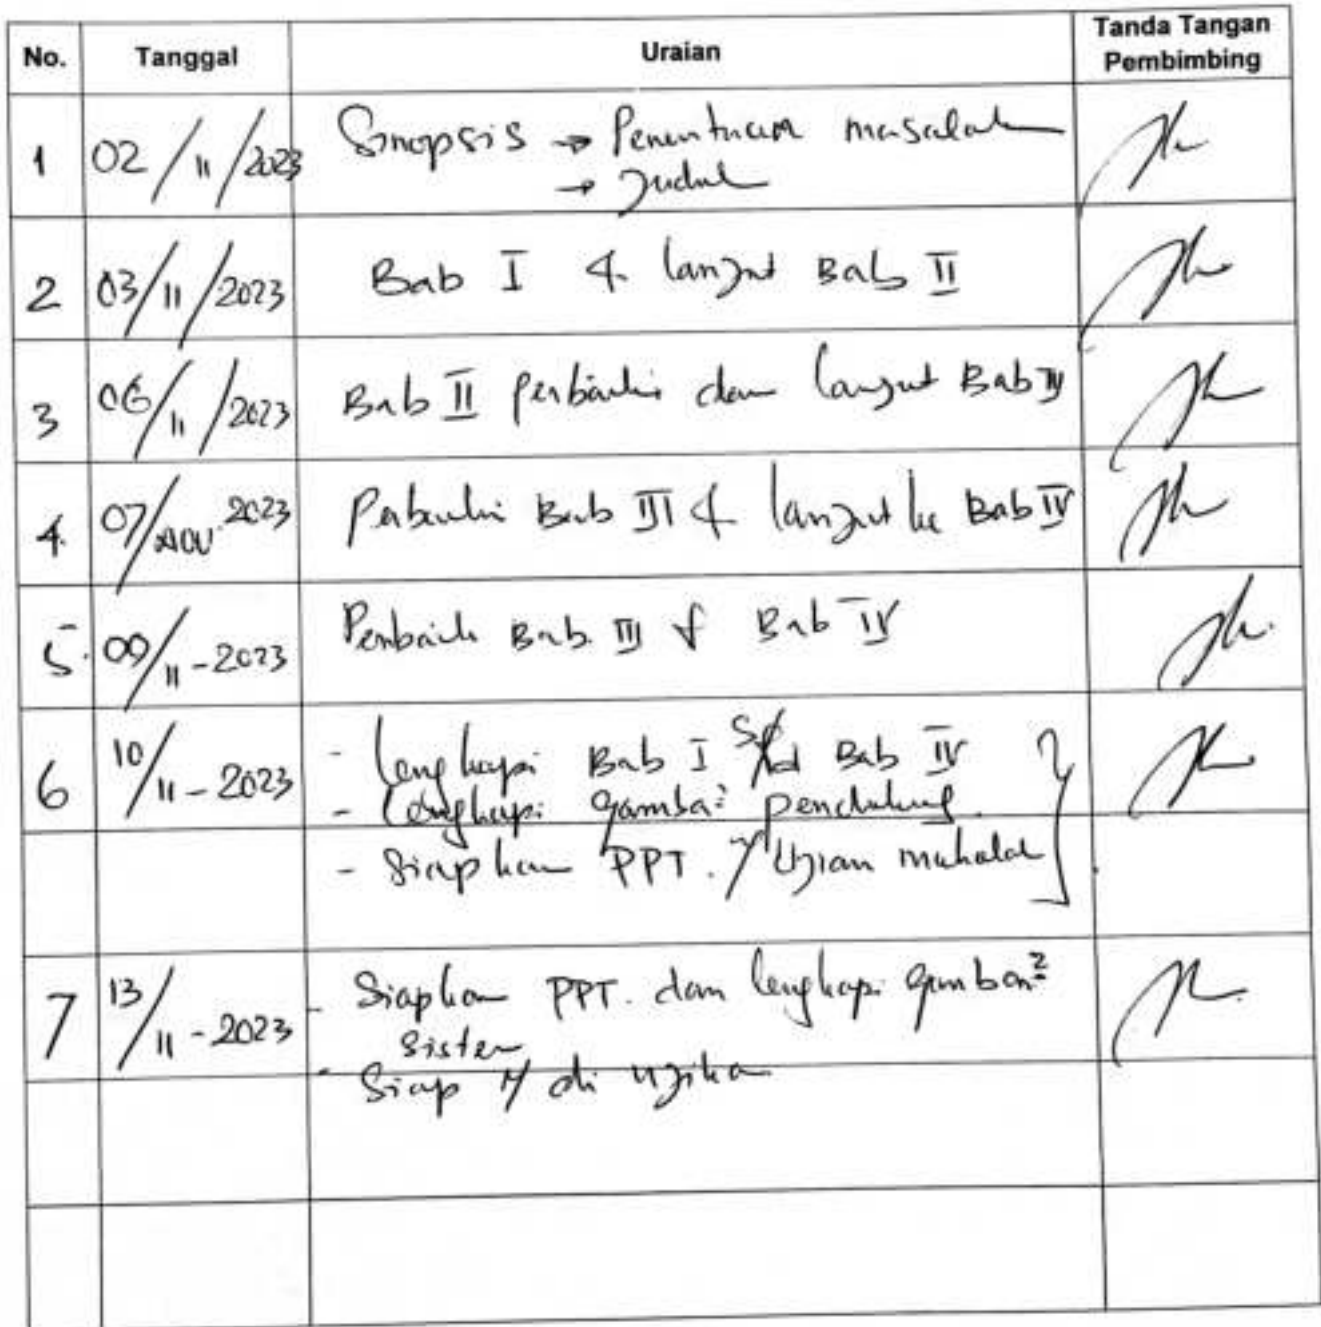 No. Tanggal Uraian Tanda Tangan Pembimbing
1 02/11/2023 Sinopsis → Penentuan masalah
→ Judul
2 03/11/2023 Bab I & lanjut Bab II
3 06/11/2023 Bab II perbaiki dan lanjut Bab
4. 07/Nov 2023 Perbaiki Bab III & lanjut ke Bab IV
5. 09/11-2023 Perbaiki Bab III & Bab IV
6 10/11-2023 - Lengkapi Bab I s/d Bab IV
- Lengkapi gambar² pendukung
- Siapkan PPT. Ujian makalah
7 13/11-2023 - Siapkan PPT. dan lengkapi gambar²
sistem
- Siap di ujikan